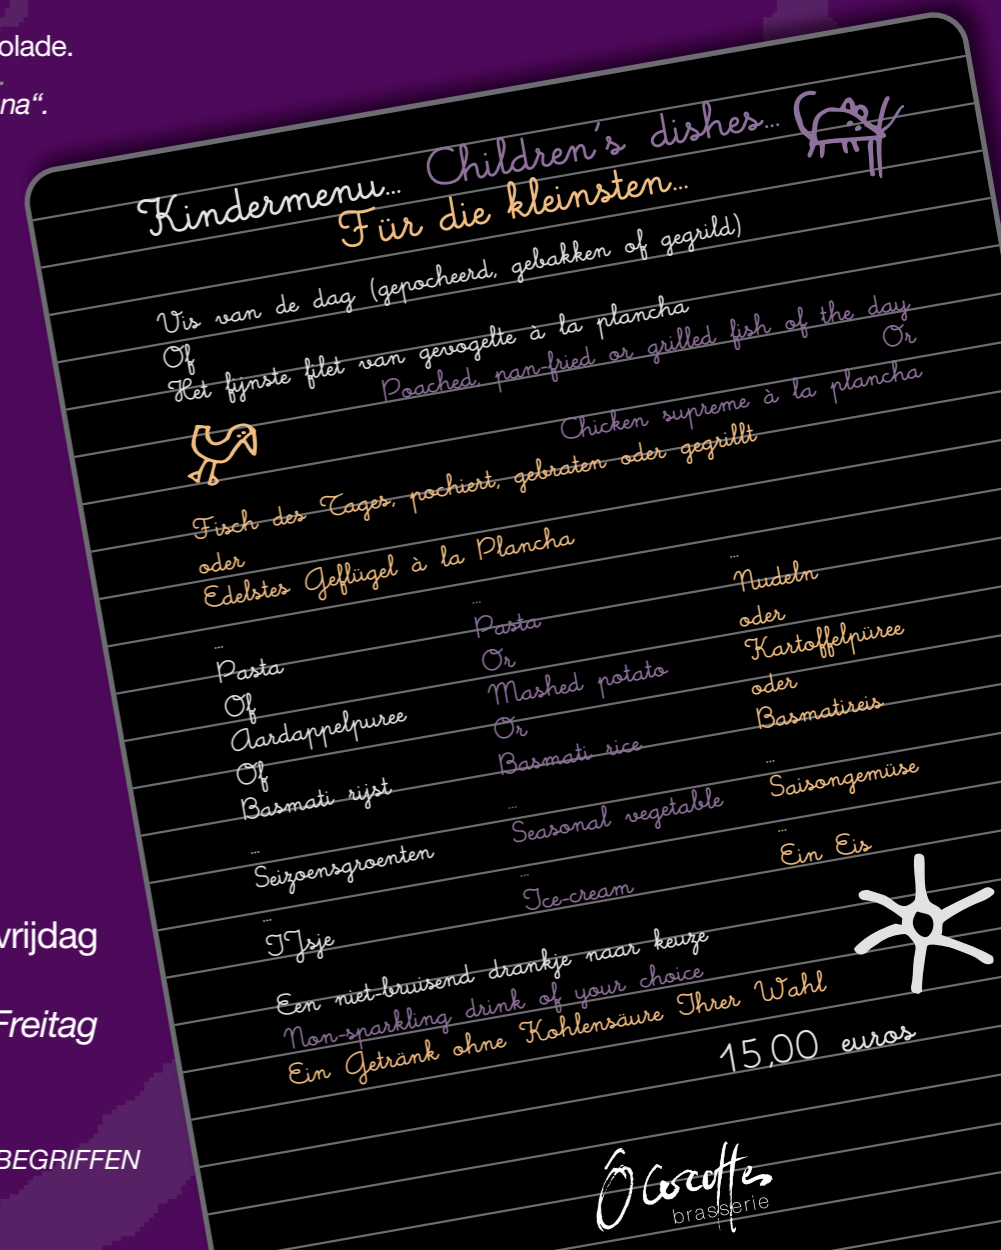 olade.
na“.
Kindermenu... Children's dishes...
Für die kleinsten...
Vis van de dag (gepocheerd, gebakken of gegrild)
Of
Het fijnste filet van gevogelte à la plancha
Poached, pan-fried or grilled fish of the day
Or
Chicken supreme à la plancha
Fisch des Tages, pochiert, gebraten oder gegrillt
oder
Edelstes Geflügel à la Plancha
...
Pasta
Of
Aardappelpuree
Of
Basmati rijst
...
Seizoensgroenten
...
IJsje
...
Pasta
Or
Mashed potato
Or
Basmati rice
...
Seasonal vegetable
...
Ice-cream
...
Nudeln
oder
Kartoffelpüree
oder
Basmatireis
...
Saisongemüse
...
Ein Eis
Een niet-bruisend drankje naar keuze
Non-sparkling drink of your choice
Ein Getränk ohne Kohlensäure Ihrer Wahl
15,00 euros
vrijdag
Freitag
BEGRIFFEN
Ô Cocottes
brasserie